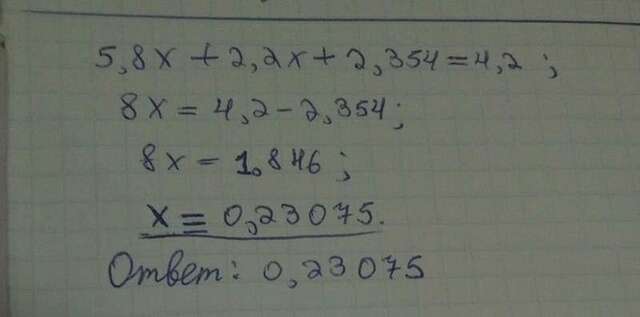 5,8x + 2,2x + 2,354 = 4,2 ;
8x = 4,2 - 2,354;
8x = 1.846 ;
x = 0,23075.
Ответ: 0,23075